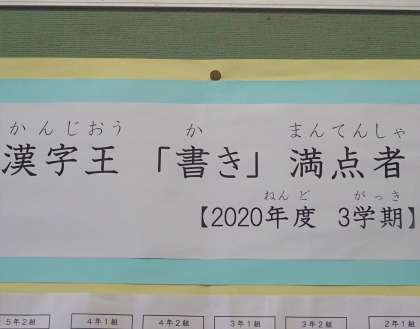 かんじおう か まんてんしゃ
漢字王 「書き」 満点者
ねんど がっき
【2020年度 3学期】
5年2組 4年1組 4年2組 3年1組 3年2組 2年1組